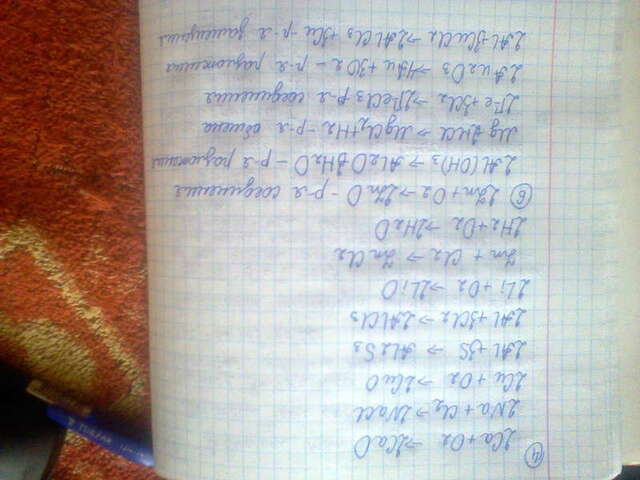 ④
2Ca + O2 → 2CaO
2Na + Cl2 → 2NaCl
2Cu + O2 → 2CuO
2Al + 3S → Al2S3
2Al + 3Cl2 → 2AlCl3
2Li + O2 → 2LiO
Zn + Cl2 → ZnCl2
2H2 + O2 → 2H2O
⑥ 2Zn + O2 → 2ZnO - р-я соединения
2Al(OH)3 → Al2O3 3H2O - р-я разложения
Mg 2HCl → MgCl2 + H2 - р-я обмена
2Fe + 3Cl2 → 2FeCl3 р-я соединения
2Au2O3 → 4Au + 3O2 - р-я разложения
2Al 3CuCl2 → 2AlCl3 + 3Cu р-я замещения